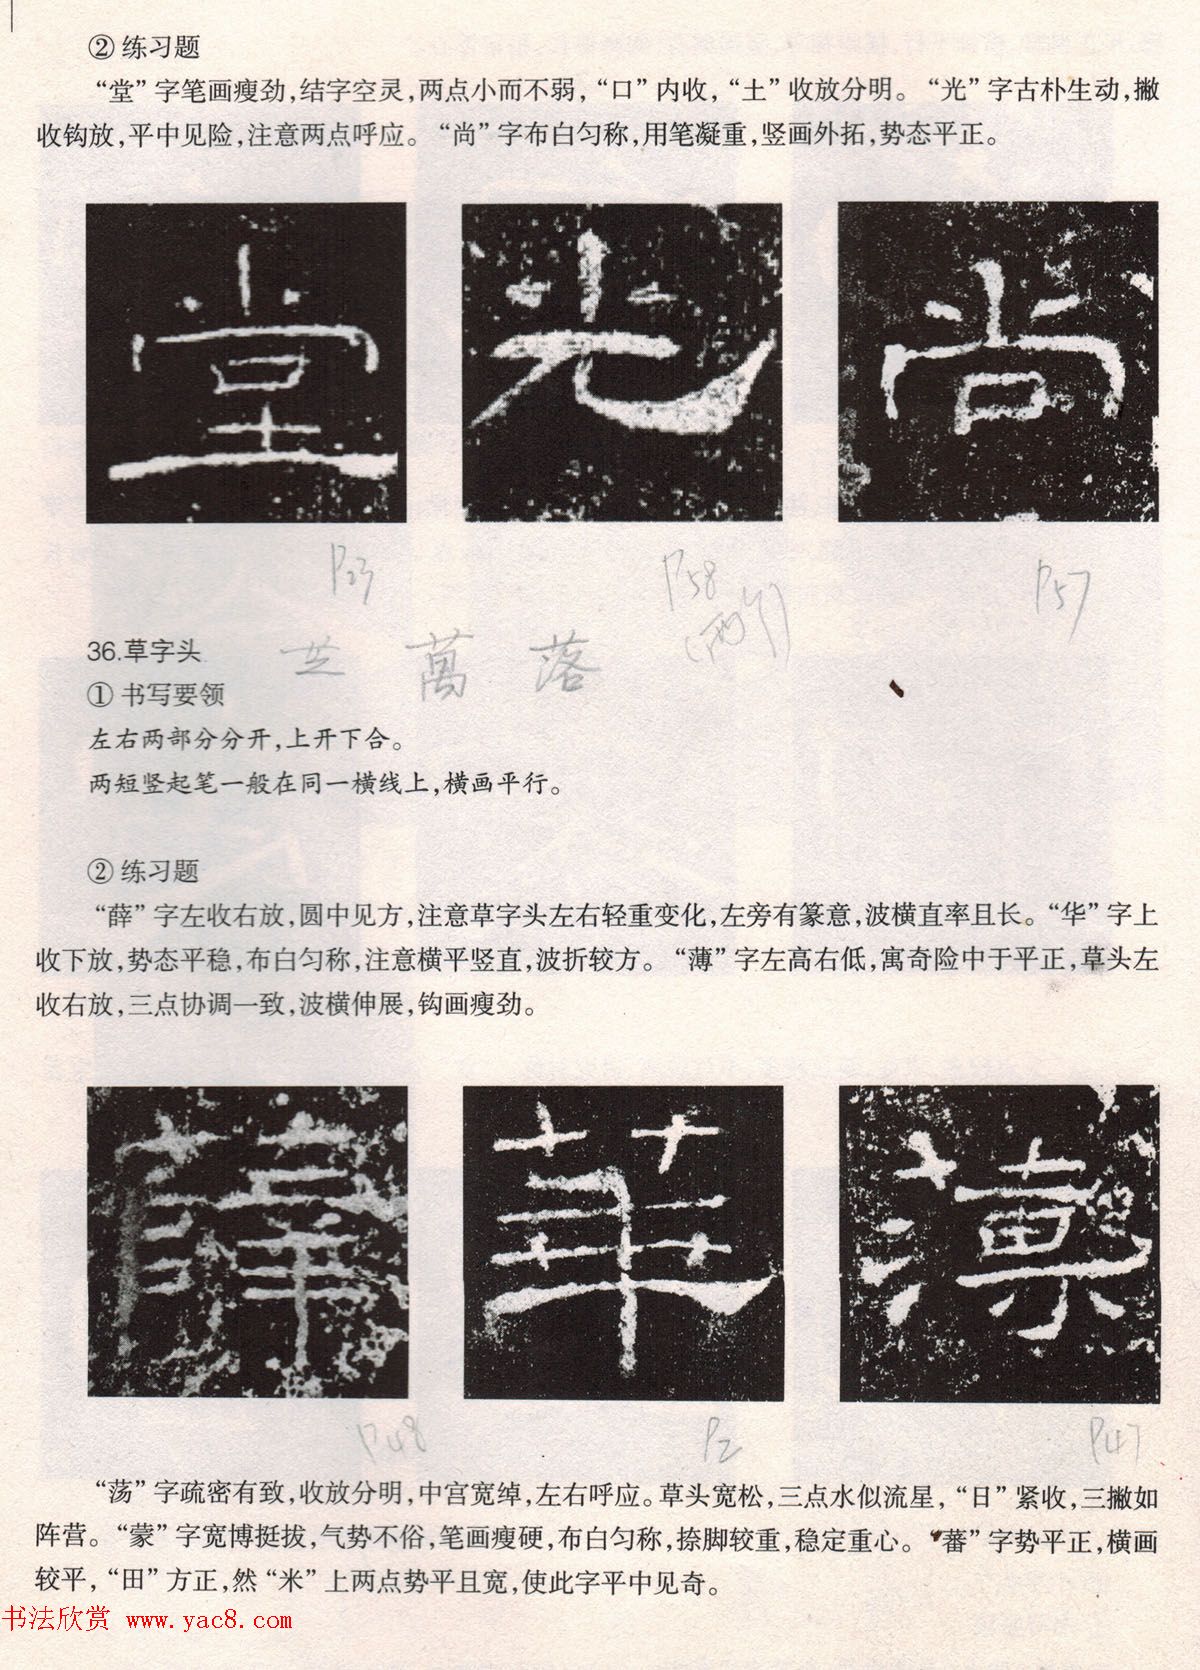 ② 练习题
“堂”字笔画瘦劲，结字空灵，两点小而不弱，“口”内收，“土”收放分明。“光”字古朴生动，撇
收钩放，平中见险，注意两点呼应。“尚”字布白匀称，用笔凝重，竖画外拓，势态平正。
堂 光 尚
P23 P58 P57
(两个)
36.草字头 芝 萬 落
① 书写要领
左右两部分分开，上开下合。
两短竖起笔一般在同一横线上，横画平行。
② 练习题
“薛”字左收右放，圆中见方，注意草字头左右轻重变化，左旁有篆意，波横直率且长。“华”字上
收下放，势态平稳，布白匀称，注意横平竖直，波折较方。“薄”字左高右低，寓奇险中于平正，草头左
收右放，三点协调一致，波横伸展，钩画瘦劲。
薛 華 薄
P48 P2 P47
“荡”字疏密有致，收放分明，中宫宽绰，左右呼应。草头宽松，三点水似流星，“日”紧收，三撇如
阵营。“蒙”字宽博挺拔，气势不俗，笔画瘦硬，布白匀称，捺脚较重，稳定重心。“蕃”字势平正，横画
较平，“田”方正，然“米”上两点势平且宽，使此字平中见奇。
书法欣赏 www.yac8.com